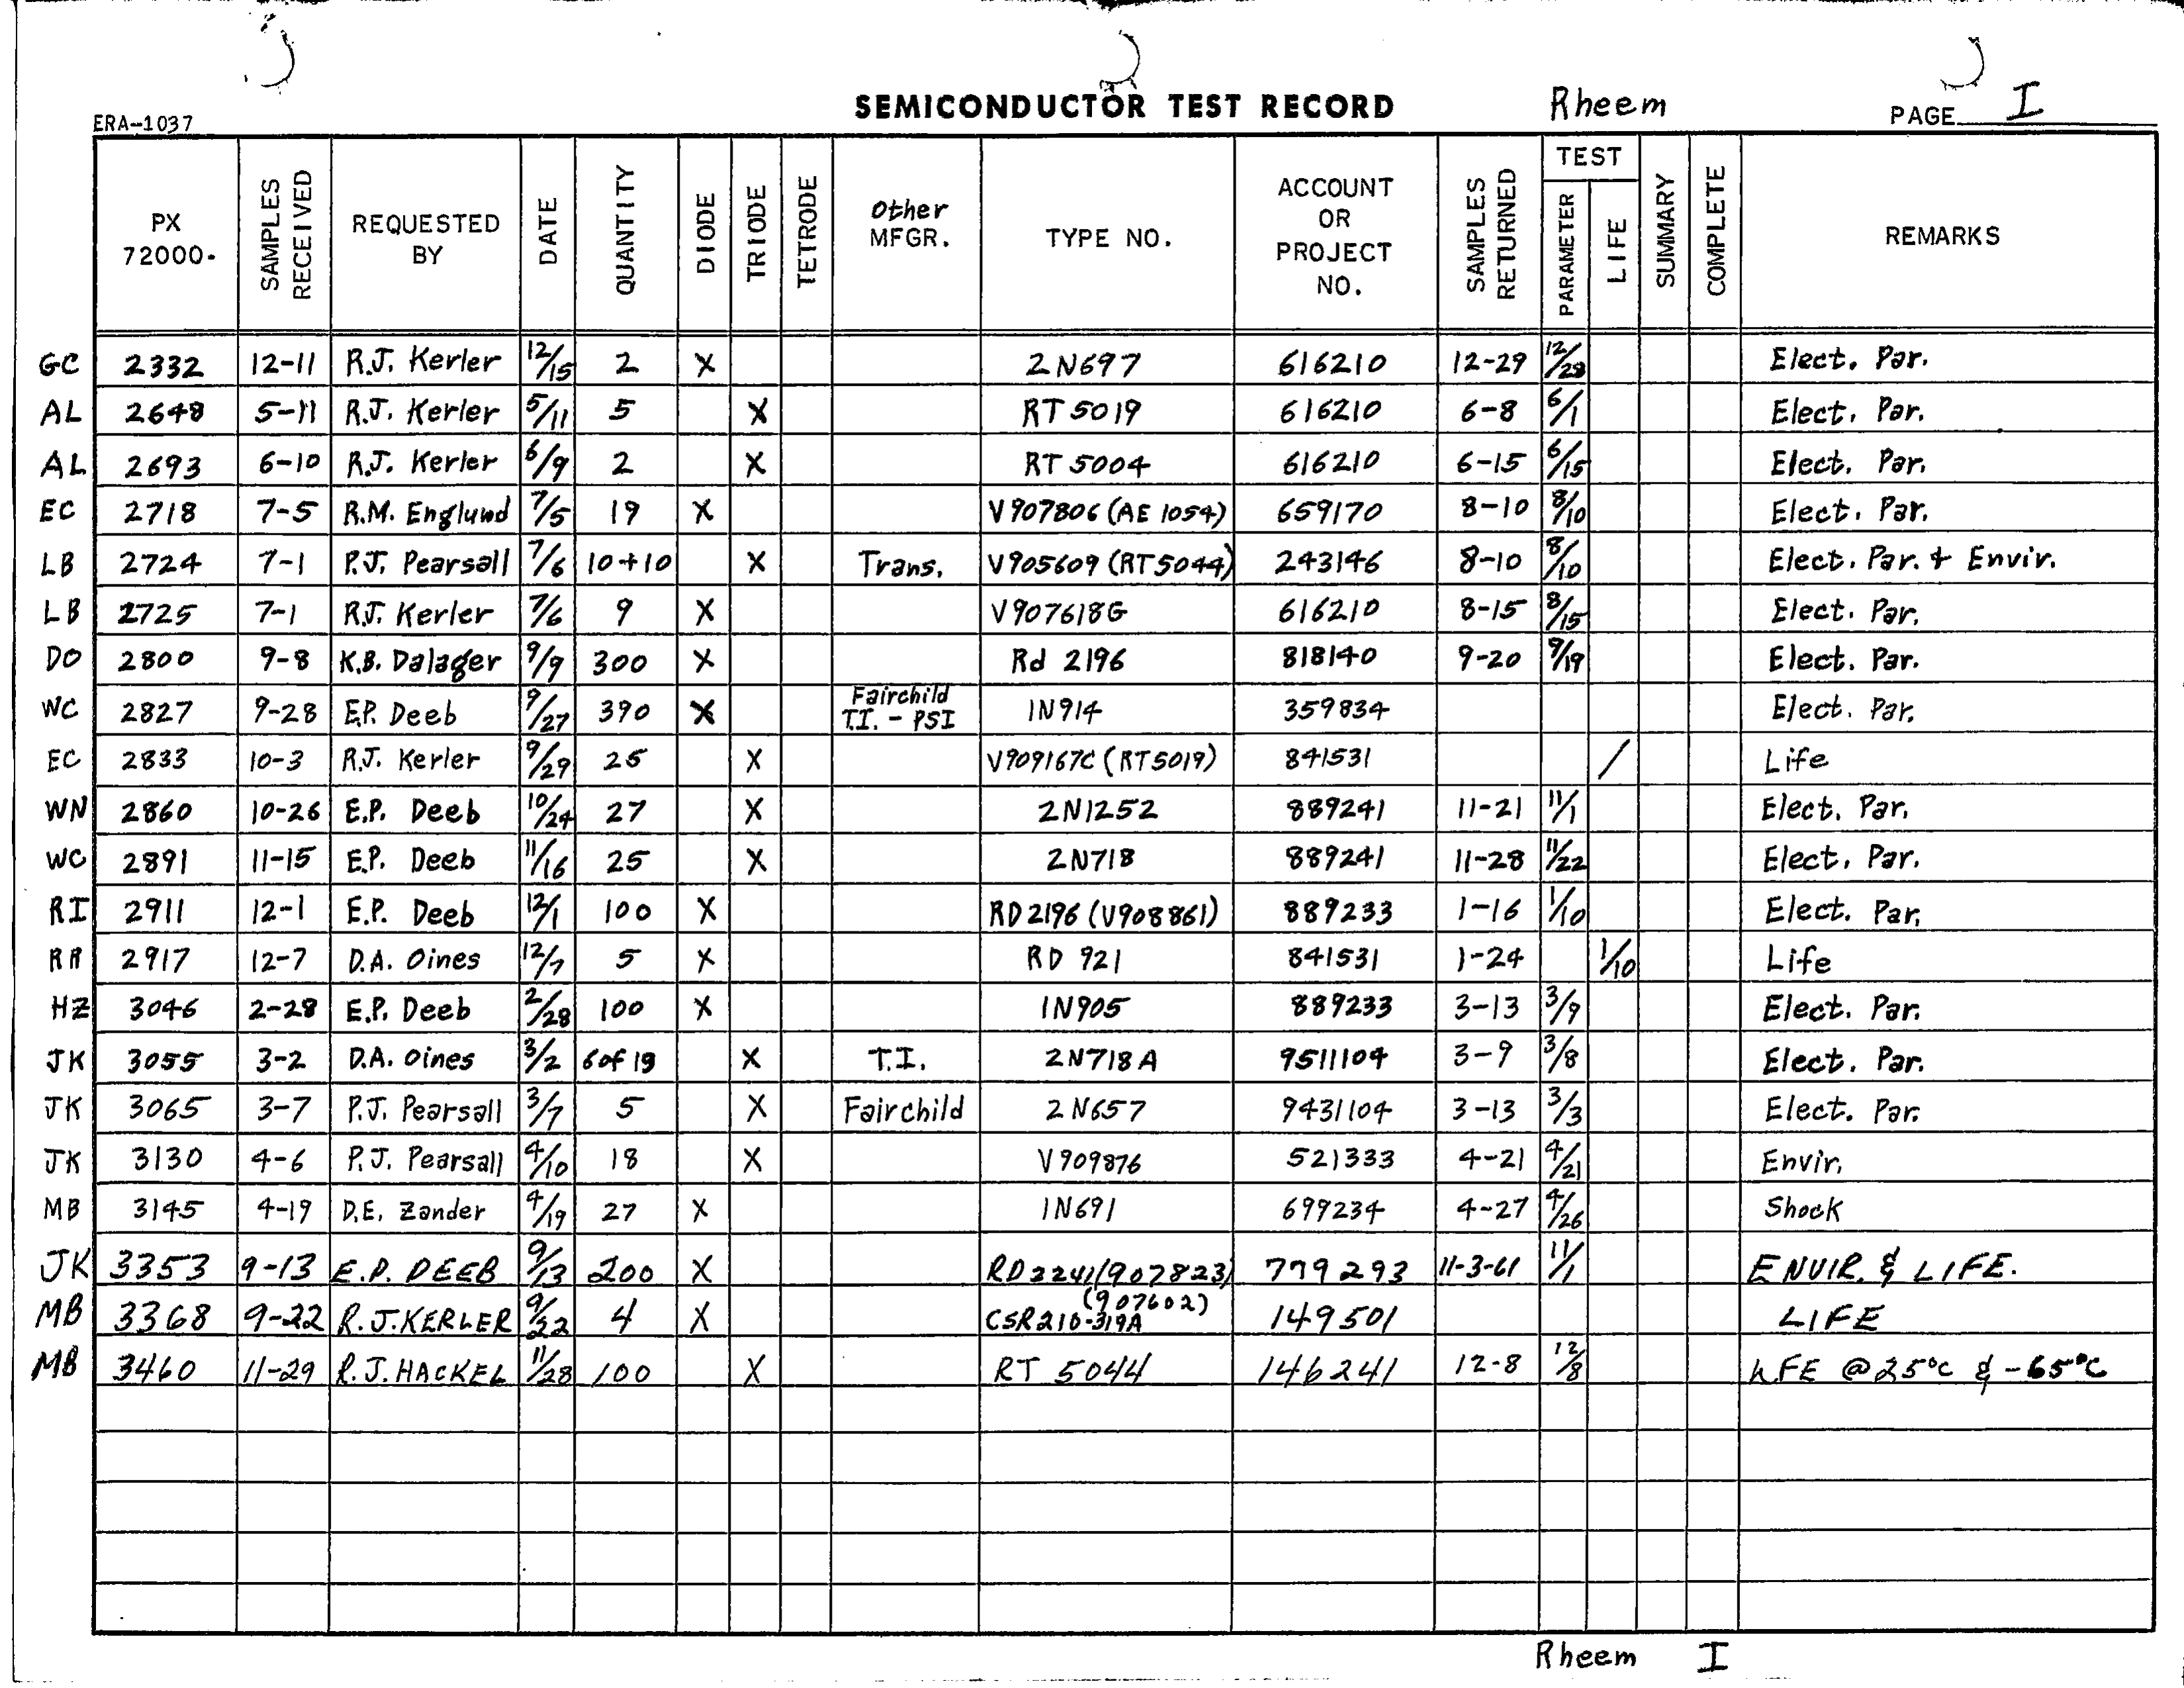 SEMICONDUCTOR TEST RECORD Rheem PAGE I
ERA-1037
PX 72000- SAMPLES RECEIVED REQUESTED BY DATE QUANTITY DIODE TRIODE TETRODE Other MFGR. TYPE NO. ACCOUNT OR PROJECT NO. SAMPLES RETURNED TEST PARAMETER LIFE SUMMARY COMPLETE REMARKS
GC 2332 12-11 R.J. Kerler 12/15 2 X 2N697 616210 12-29 12/28 Elect. Par.
AL 2648 5-11 R.J. Kerler 5/11 5 X RT 5019 616210 6-8 6/1 Elect. Par.
AL 2693 6-10 R.J. Kerler 6/9 2 X RT 5004 616210 6-15 6/15 Elect. Par.
EC 2718 7-5 R.M. Englund 7/5 19 X V907806 (AE 1054) 659170 8-10 8/10 Elect. Par.
LB 2724 7-1 P.J. Pearsall 7/6 10+10 X Trans. V905609 (RT5044) 243146 8-10 8/10 Elect. Par. + Envir.
LB 2725 7-1 R.J. Kerler 7/6 9 X V907618G 616210 8-15 8/15 Elect. Par.
DO 2800 9-8 K.B. Dalager 9/9 300 X Rd 2196 818140 9-20 9/19 Elect. Par.
WC 2827 9-28 E.P. Deeb 9/27 390 X Fairchild T.I. - PSI 1N914 359834 Elect. Par.
EC 2833 10-3 R.J. Kerler 9/29 25 X V909167C (RT5019) 841531 / Life
WN 2860 10-26 E.P. Deeb 10/24 27 X 2N1252 889241 11-21 11/1 Elect. Par.
WC 2891 11-15 E.P. Deeb 11/16 25 X 2N718 889241 11-28 11/22 Elect. Par.
RI 2911 12-1 E.P. Deeb 12/1 100 X RD2196 (V908861) 889233 1-16 1/10 Elect. Par.
RR 2917 12-7 D.A. Oines 12/7 5 X RD 921 841531 1-24 1/10 Life
HZ 3046 2-28 E.P. Deeb 2/28 100 X 1N905 889233 3-13 3/9 Elect. Par.
JK 3055 3-2 D.A. Oines 3/2 6 of 19 X T.I. 2N718A 9511104 3-9 3/8 Elect. Par.
JK 3065 3-7 P.J. Pearsall 3/7 5 X Fairchild 2N657 9431104 3-13 3/3 Elect. Par.
JK 3130 4-6 P.J. Pearsall 4/10 18 X V909876 521333 4-21 4/21 Envir.
MB 3145 4-19 D.E. Zander 4/19 27 X 1N691 699234 4-27 4/26 Shock
JK 3353 9-13 E.P. DEEB 9/13 200 X RD2241(907823) 779293 11-3-61 11/1 ENVIR. & LIFE.
MB 3368 9-22 R.J. KERLER 9/22 4 X (907602) CSR210-319A 149501 LIFE
MB 3460 11-29 R.J. HACKEL 11/28 100 X RT 5044 146241 12-8 12/8 hFE @ 25°C & -65°C
Rheem I